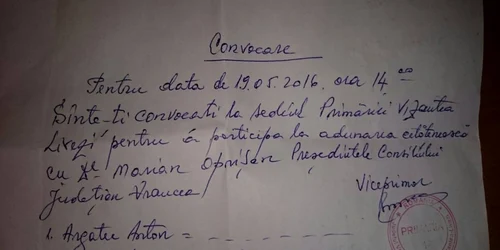 Convocare
Pentru data de 19.05.2016. ora 14 oo
Sînte-ti convocati la sediul Primăriei Vizantea
Livezi pentru a participa la adunarea cetătenească
cu Marian Oprisan Presedintele Consiliului
Judetian Vrancea
Viceprimar
1. Argatu Anton =